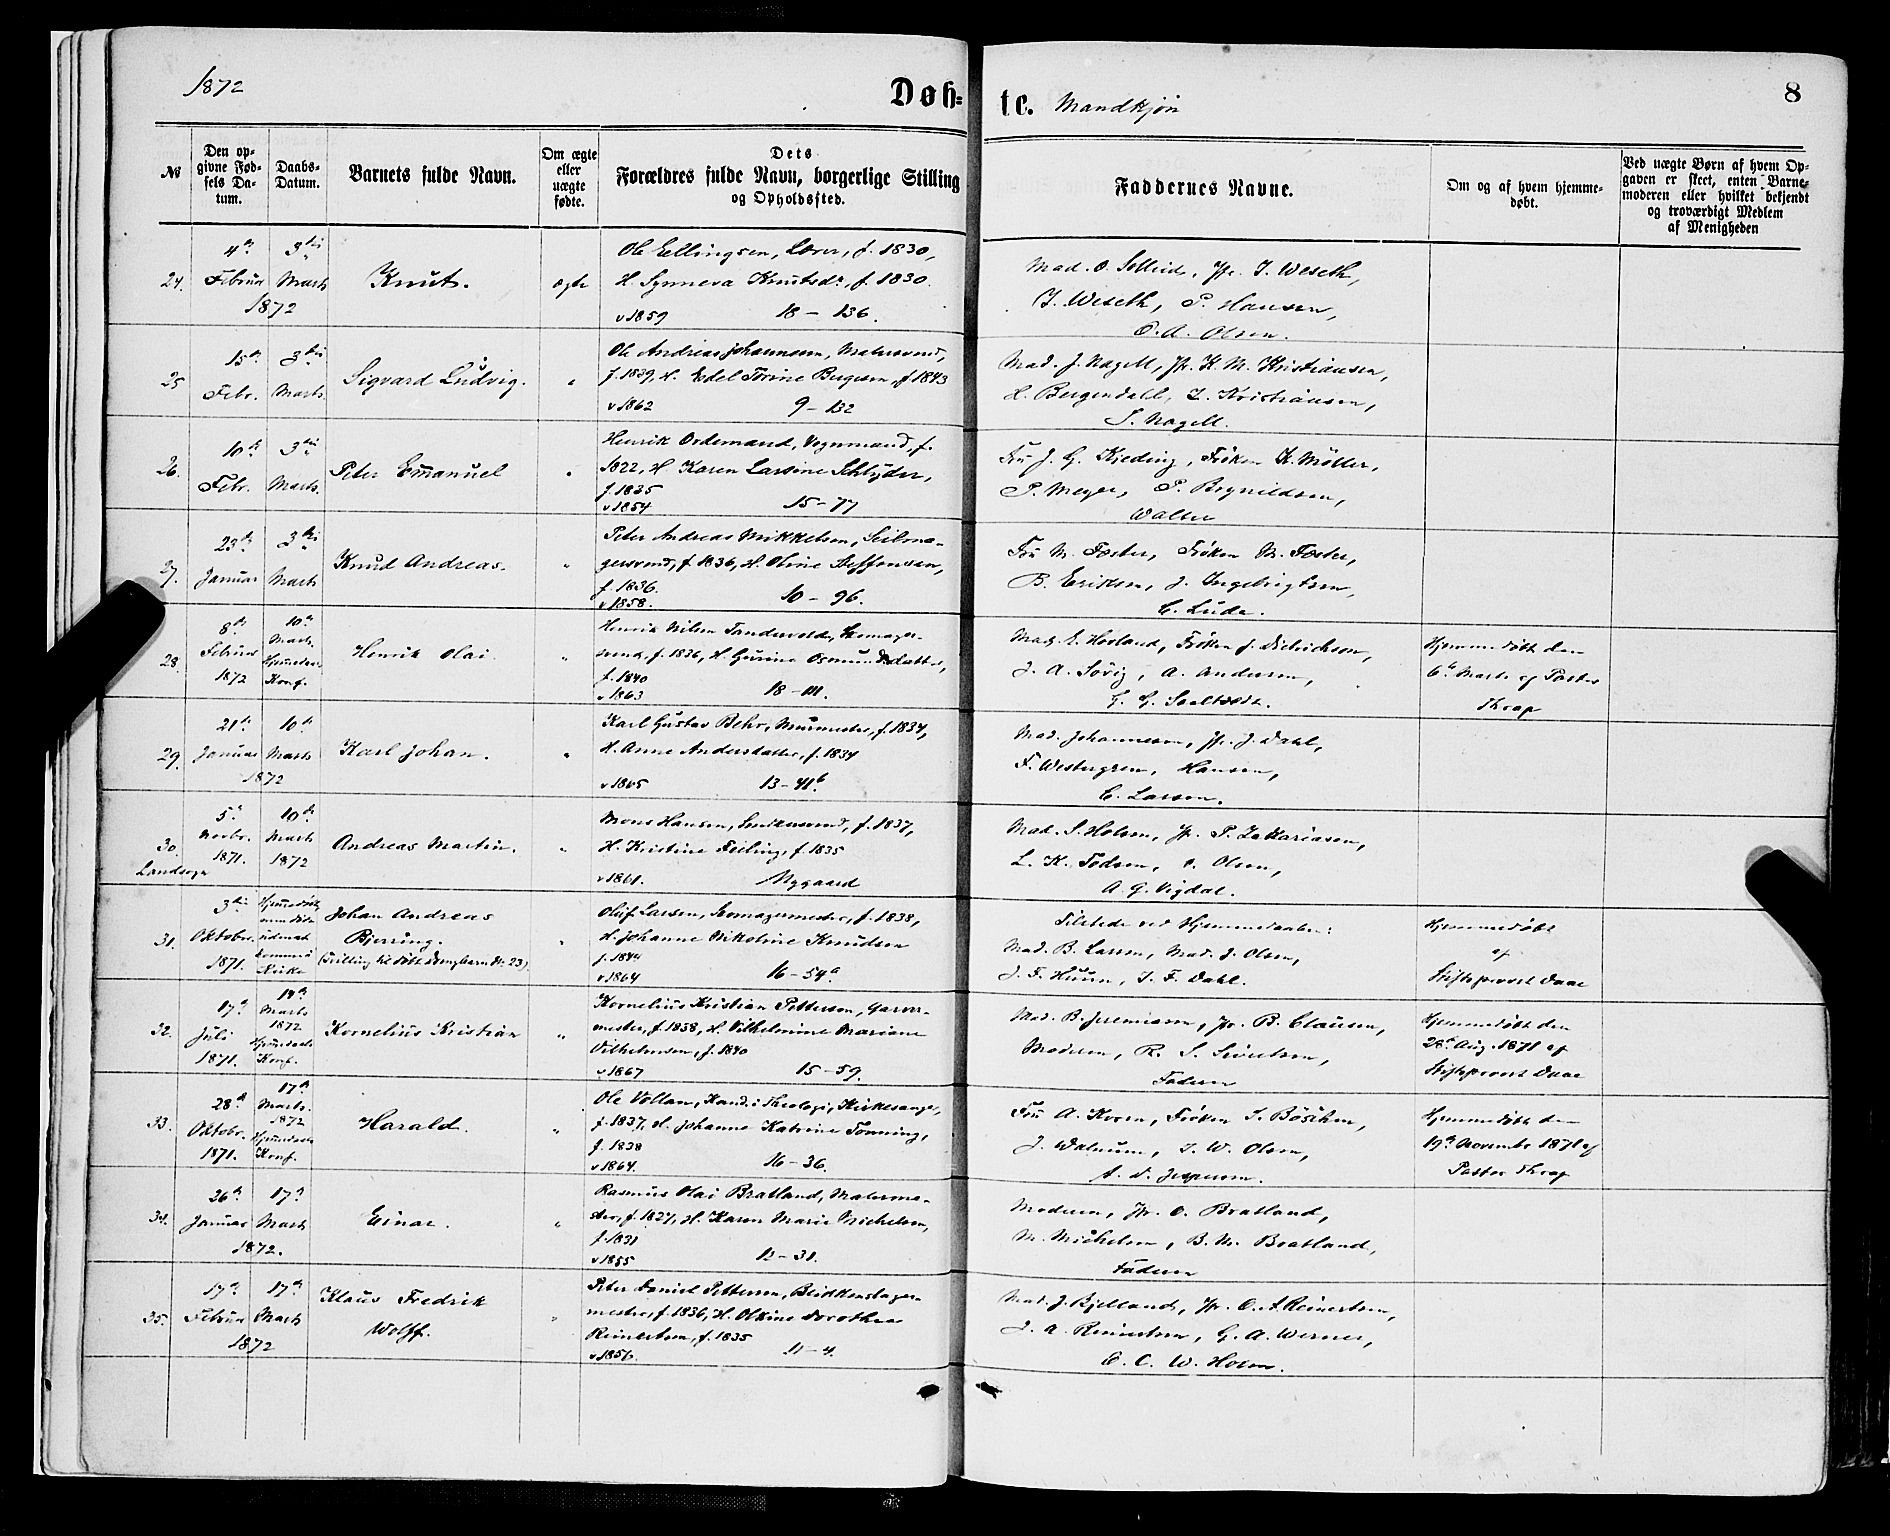 1872
Døb-
te. Mandkjøn
8
No
Den op-
givne Fød-
sels Da-
tum.
Daabs-
Datum.
Barnets fulde Navn.
Om ægte
eller
uægte
fødte.
Dets
Forældres fulde Navn, borgerlige Stilling
og Opholdssted.
Faddernes Navne.
Om og af hvem hjemme-
døbt.
Ved uægte Børn af hvem Op-
gaven er skeet, enten Barne-
moderen eller hvilket bekjendt
og troværdigt Medlem
af Menigheden
24.
4de
Februar
3die
Marts
1872
Knut.
ægte
Ole Ellingsen, Lærer, f. 1830,
H. Synneva Knutsdr, f. 1830.
v 1859 18 – 136.
Mad. O. Selleid, Jfr. I. Weseth,
I. Weseth, P. Hansen,
O. A. Olsen.
25
15de
Febr.
3die
Marts
Sigvard Ludvig.
"
Ole Andreas Johannesen, Malersvend,
f. 1839, H. Edel Torine Bugesen, f 1843
v 1862 9 – 132
Mad. J. Nagell, Jfr. K. M. Kristiansen,
H. Bergendahl, L. Kristiansen,
S. Nagell.
26.
10de
Febr.
3die
Marts.
Peter Emanuel
"
Henrik Ordemand, Vognmand, f.
1822, H Karen Larsine Schlyder,
f. 1835
v 1854 15 – 77
Fru J. G. Kjeding, Frøken K. Møller,
P. Meyer, P. Brynildsen,
Walter
27.
23de
Januar
3die
Marts
Knud Andreas.
"
Peter Andreas Mikkelsen, Seilma-
gersvend, f 1836, H. Oline Steffensen,
f. 1836.
v 1858. 10 – 96.
Fru M. Foster, Frøken M. Foster,
B. Eriksen, J. Ingebrigtsen,
C. Lude.
28.
8de
Februar
1872
10de
Marts.
Hjemmedaab
Konf.
Henrik Olai
"
Henrik Nilsen Tandervold, Skomager-
svend, f. 1836, H. Gurine Osmundsdatter,
f. 1840
v 1863 18 – 111.
Mad. E. Hovland, Frøken J. Didrichsen,
J. A. Søvig, A. Andersen,
G. G. Saltvedt.
Hjemmedøbt den
6te Marts af Pastor
Thrap
29.
21de
Januar
10de
Marts
1872
Karl Johan.
"
Karl Gustav Behr, Murmester, f. 1834,
H. Anne Andersdatter, f. 1834
v 1865 13 – 41b
Mad. Johannesen, Jfr. J. Dahl,
F. Westergren, Hansen,
C. Larsen.
30.
Landsogn
5te
Novbr.
1871.
10de
Marts
1872
Andreas Martin.
"
Mons Hansen, Snikersvend, f. 1837,
H. Kristine Feiling, f. 1835
v 1861. Nygaard
Mad. S. Holsen, Jfr. P. Zakariasen,
L. K. Todsen, O. Olsen,
A. G. Vigdal.
31.
3die
Oktobr.
1871.
Hjemmedøbt
men døde
udenat
komme i
Kirke
Johan Andreas
Bjerring.
(Tvilling til døbt Drengbarn No. 23)
"
Oluf Larsen, Skomagermester, f. 1838,
H. Johanne Nikoline Knudsen
f. 1844
v 1864 16 – 54a
Tilstede ved Hjemmedaaben:
Mad. B. Larsen, Mad. J. Olsen,
J. F. Huun, I. F. Dahl.
Hjemmedøbt
af
Stiftsprovst Daae
32.
17de
Juli
1871.
14de
Marts
1872
Hjemmedaab
Konf.
Kornelius Kristian
"
Kornelius Kristian Pettersen, Garver-
mester, f. 1838, H. Vilhelmine Mariane
Vilhelmsen, f. 1840
v 1867 15 – 59.
Mad. B. Jeremiasen, Jfr. B. Clausen,
Moderen, R. S. Sivertsen,
Faderen
Hjemmedøbt den
28de Aug. 1871 af
Stiftsprovst Daae
33.
28de
Oktobr.
1871.
17de
Marts.
1872
Hjemmedaab
Konf.
Harald.
"
Ole Vollan, Kand. i Theologi, Kirkesanger,
f. 1837, H. Johanne Katrine Tønning,
f. 1838
v 1864. 16 – 36.
Fru A. Kvern, Frøken S. Bøschen,
J. Walnum, I. W. Olsen,
A. D. Jespersen.
Hjemmedøbt den
19de November 1871 af
Pastor Thrap
34.
26de
Januar
17de
Marts
1872.
Einar.
"
Rasmus Olai Bratland, Malerme-
ster, f. 1827, H. Karen Marie Michelsen,
f. 1831
v 1855 12 – 31.
Moderen, Jfr. O. Bratland,
M. Michelsen, B. M. Bratland,
Faderen
35.
17de
Februar
17de
Marts
1872
Klaus Fredrik
Wolff.
"
Peter Daniel Pettersen, Blikkenslager-
mester, f. 1836, H. Oline Dorothea
Reinertsen, f. 1835
v 1856. 11 – 4.
Mad. J. Bjelland, Jfr. O. A. Reinertsen,
J. A. Reinertsen, G. A. Werner,
C. C. W. Holsen.